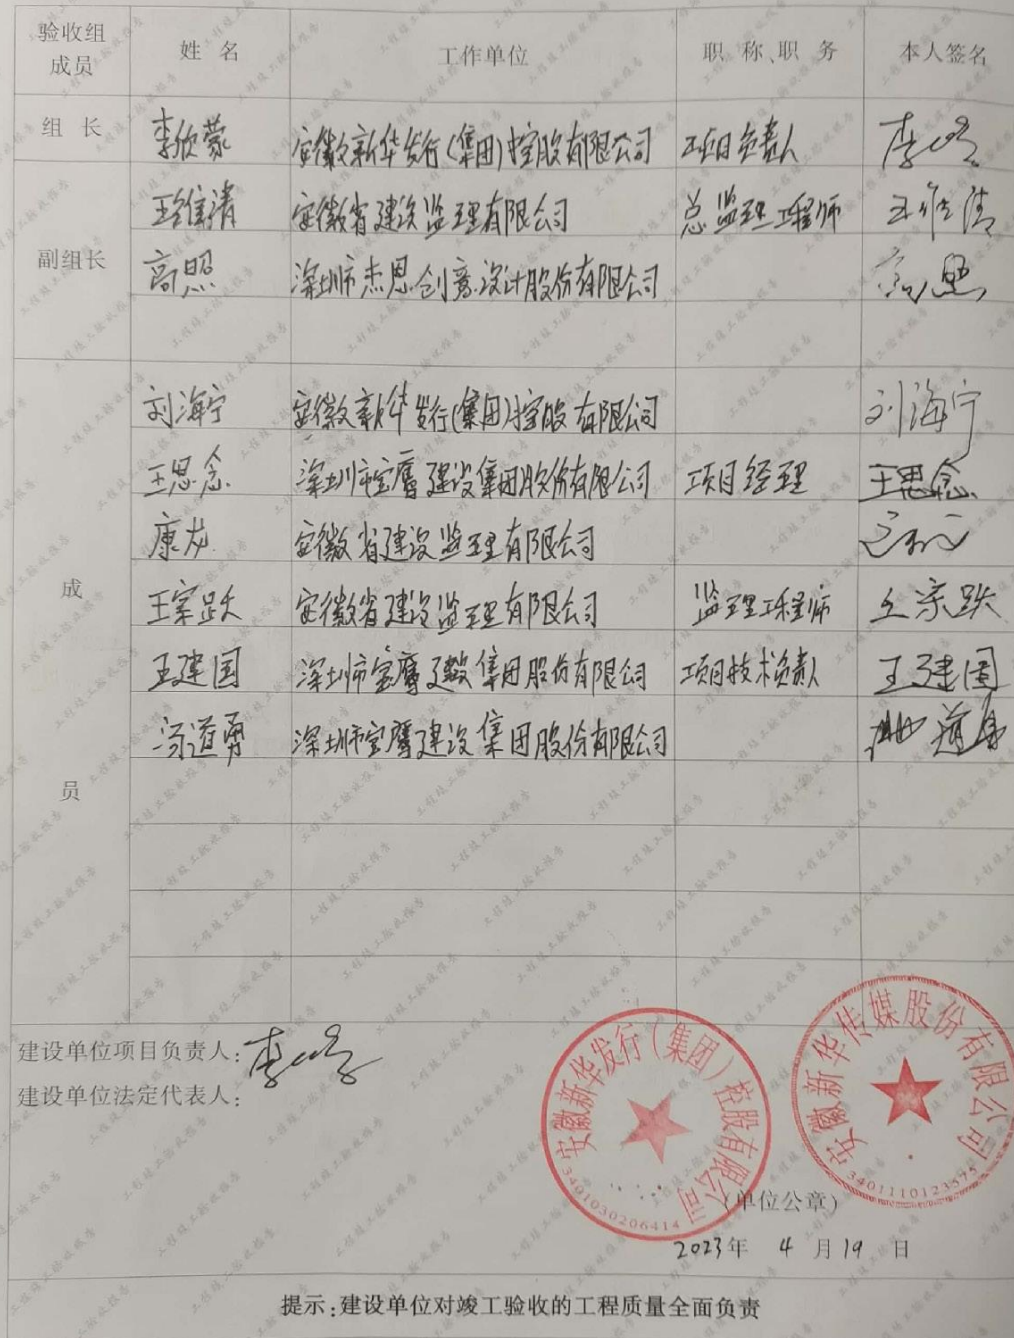 验收组成员 姓名 工作单位 职称、职务 本人签名
组长 李欣蒙 安徽新华发行(集团)控股有限公司 项目负责人
副组长 王维清 安徽省建设监理有限公司 总监理工程师 王维清
高照 深圳市杰恩创意设计股份有限公司 高照
成员 刘海宁 安徽新华发行(集团)控股有限公司 刘海宁
王思念 深圳市宝鹰建设集团股份有限公司 项目经理 王思念
康龙 安徽省建设监理有限公司
王宗跃 安徽省建设监理有限公司 监理工程师 王宗跃
王建国 深圳市宝鹰建设集团股份有限公司 项目技术负责人 王建国
汤道勇 深圳市宝鹰建设集团股份有限公司
建设单位项目负责人:
建设单位法定代表人:
安徽新华发行(集团)控股有限公司
3401030206414
安徽新华传媒股份有限公司
3401110123575
(单位公章)
2023年 4月19日
提示:建设单位对竣工验收的工程质量全面负责
工程竣工验收报告